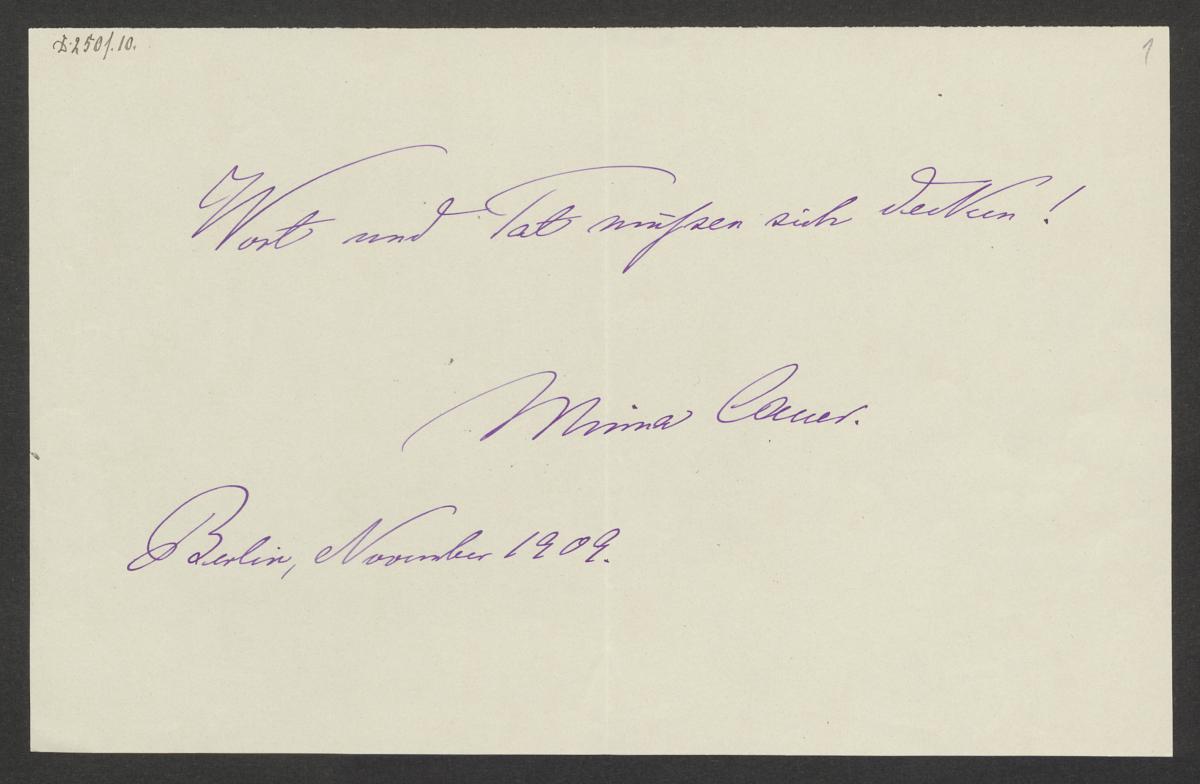 1
Wort und Tat müſsen sich decken!
Minna Cauer.
Berlin, November 1909.